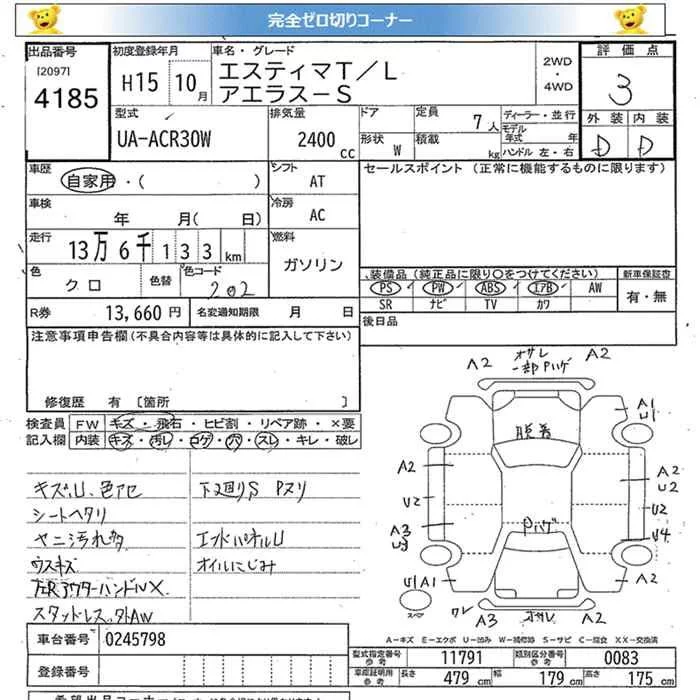 完全ゼロ切りコーナー
出品番号 初度登録年月 車名・グレード 評価点
[2097]
4185 H15 10月 エスティマT/L 2WD・4WD 3
アエラス-S
型式 排気量 ドア 定員 7人 ディーラー・並行 外装 内装
UA-ACR30W 2400cc 形状 W 積載 kg モデル年式 年 D D
ハンドル 左・右
車歴 自家用・( ) シフト AT セールスポイント (正常に機能するものに限ります)
車検 年 月( 日) 冷房 AC
走行 13万6千133km 燃料 ガソリン
色 クロ 色替 色コード 202
装備品(純正品に限り〇をつけてください) 新車保証書
PS PW ABS エアB AW 有・無
SR ナビ TV カワ
R券 13,660円 名変通知期限 月 日 後日品
注意事項申告欄(不具合内容等は具体的に記入して下さい)
修復歴 有 [箇所 ]
検査員 FW キズ・飛石・ヒビ割・リペア跡・×要
記入欄 内装 キズ・汚レ・コゲ・穴・スレ・キレ・破レ
キズ,U、色アセ 下廻りS Pヌリ
シートヘタリ
ヤニ汚れ多 エンドパネルU
ウスキズ オイルにじみ
左Rアウターハンドル×
スタッドレス、外AW
A2 オサレ A2
一部Pハゲ
A1
U1
脱着
A2 A2
U2
U2 U2
A3 Pハゲ U4
U3
U1 A1 A2
スペア
ワレ A3 オサレ A2
A-キズ E-エクボ U-凹み W-補修跡 S-サビ C-腐食 XX-交換済
車台番号 0245798
型式指定番号 参考 11791 類別区分番号 参考 0083
登録番号
車庫証明用 参考 長さ 479cm 幅 179cm 高さ 175cm